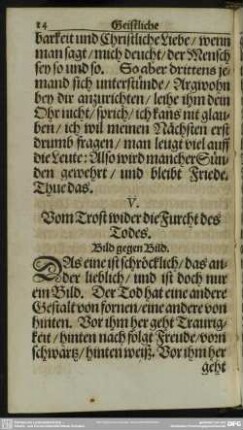 14 Geistliche
barkeit und Christliche Liebe / wenn
man sagt / mich deucht / der Mensch
sey so und so. So aber drittens je-
mand sich unterstünde / Argwohn
bey dir anzurichten / leihe ihm dein
Ohr nicht / sprich / ich kans nit glau-
ben / ich wil meinen Nächsten erst
drumb fragen / man leugt viel auff
die Leute: Also wird mancher Sün-
den gewehrt / und bleibt Friede.
Thue das.
V.
Vom Trost wider die Furcht des
Todes.
Bild gegen Bild.
DAs eine ist schröcklich / das an-
der lieblich / und ist doch nur
ein Bild. Der Tod hat eine andere
Gestalt von fornen / eine andere von
hinten. Vor ihm her geht Traurig-
keit / hinten nach folgt Freude / vorn
schwartz / hinten weiß. Vor ihm her
geht